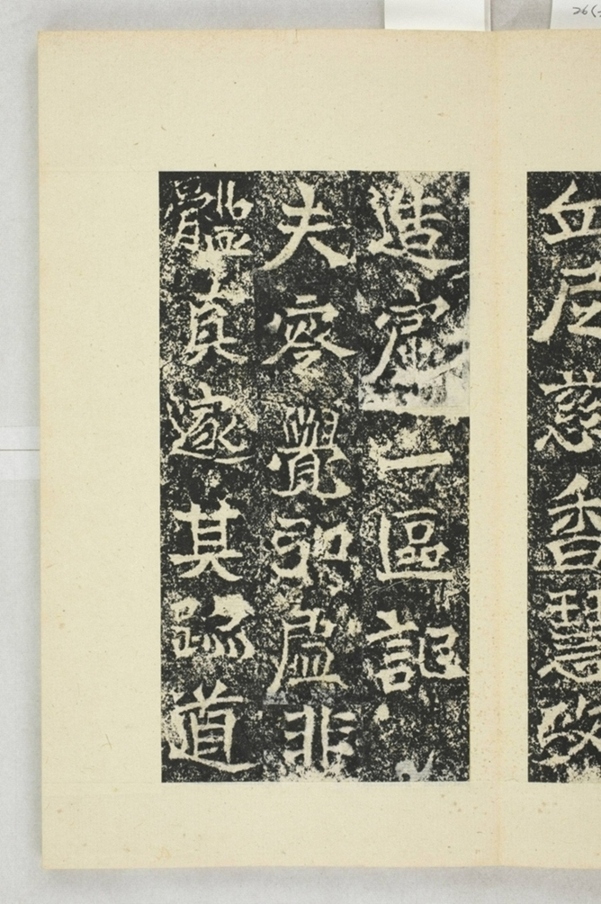 丘尼慈香慧政
造窟一區記
夫容覺弘虛非
體真遂其跡道